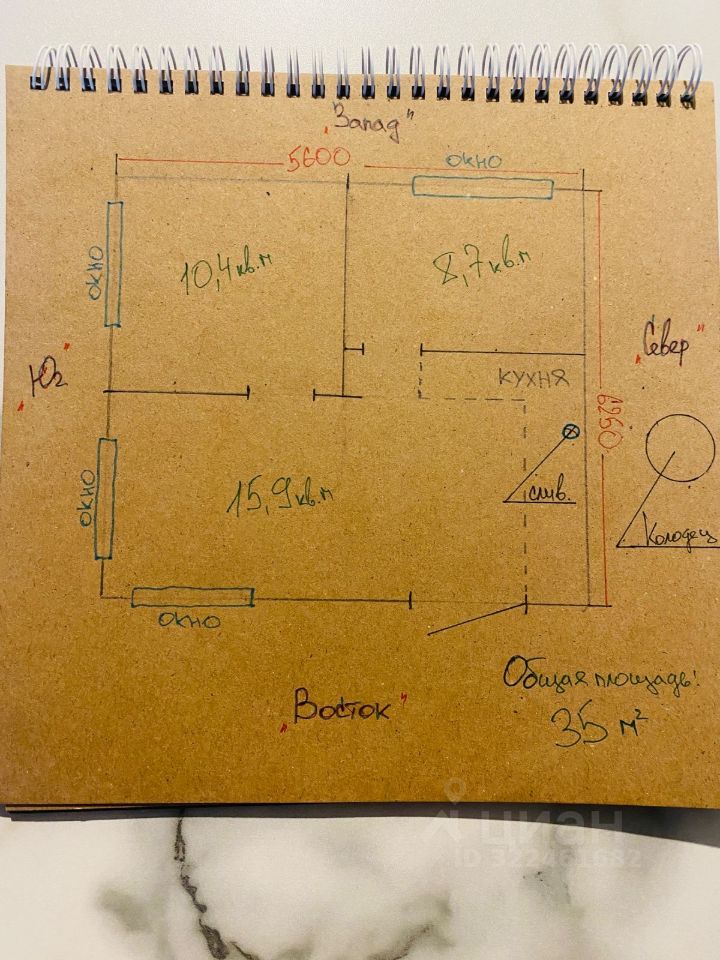 "Запад"
5600
окно
окно
10,4 кв.м
8,7 кв.м
"Север"
"Юг"
кухня
6250
окно
15,9 кв.м
слив.
Колодец
окно
Общая площадь:
35 м²
"Восток"
циан
ID 322461682